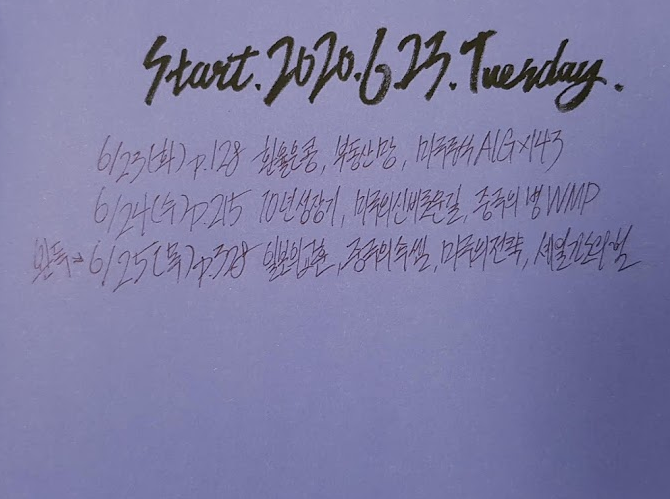 Start. 2020. 6. 23. Tuesday.
6/23(화) p.128 환율은 콩, 부동산 망, 미국 AIG
6/24(수) p.215 10년 성장기, 미국의 신비로운 길, 중국의 병 WMP
완독→ 6/25(목) p.328 일본의 교훈, 중국의 속셈, 미국의 전략, 셰일